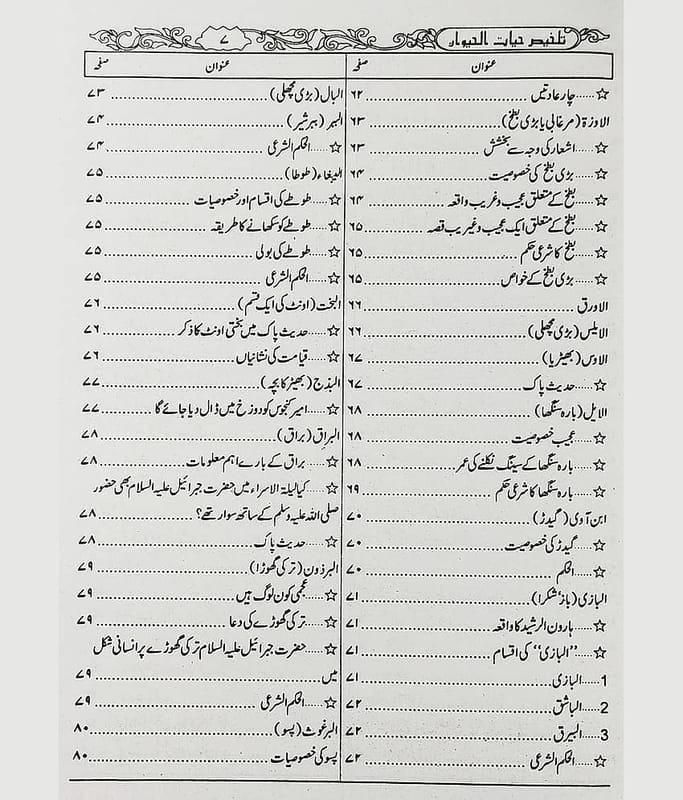 تلخیص حیات الحیوان
۷
عنوان صفحہ
☆......چار عادتیں ........ ۶۲
الاوزۃ (مرغابی یا بڑی بطخ) ........ ۶۳
☆......اشعار کی وجہ سے بخشش ........ ۶۳
☆......بڑی بطخ کی خصوصیت ........ ۶۴
☆......بطخ کے متعلق عجیب و غریب واقعہ ........ ۶۴
☆......بطخ کے متعلق ایک عجیب و غریب قصہ ........ ۶۵
☆......بطخ کا شرعی حکم ........ ۶۵
☆......بڑی بطخ کے خواص ........ ۶۵
الاورق ........ ۶۶
الالیس (بڑی مچھلی) ........ ۶۶
الاوس (بھیڑیا) ........ ۶۷
☆......حدیث پاک ........ ۶۷
الایل (بارہ سنگھا) ........ ۶۸
☆......عجیب خصوصیت ........ ۶۸
☆......بارہ سنگھا کے سینگ نکلنے کی عمر ........ ۶۸
☆......بارہ سنگھا کا شرعی حکم ........ ۶۹
ابن آویٰ (گیدڑ) ........ ۷۰
☆......گیدڑ کی خصوصیت ........ ۷۰
☆......الحکم ........ ۷۰
البازی (باز، شکرا) ........ ۷۱
☆......ہارون الرشید کا واقعہ ........ ۷۱
☆......"البازی" کی اقسام ........ ۷۱
1......البازی ........ ۷۱
2......الباشق ........ ۷۲
3......البیرق ........ ۷۲
☆......الحکم الشرعی ........ ۷۲
عنوان صفحہ
البال (بڑی مچھلی) ........ ۷۳
الببر (ببر شیر) ........ ۷۴
☆......الحکم الشرعی ........ ۷۴
الببغاء (طوطا) ........ ۷۵
☆......طوطے کی اقسام اور خصوصیات ........ ۷۵
☆......طوطے کو سکھانے کا طریقہ ........ ۷۵
☆......طوطے کی بولی ........ ۷۵
☆......الحکم الشرعی ........ ۷۵
البخت (اونٹ کی ایک قسم) ........ ۷۶
☆......حدیث پاک میں بختی اونٹ کا ذکر ........ ۷۶
☆......قیامت کی نشانیاں ........ ۷۶
البذج (بھیڑ کا بچہ) ........ ۷۷
☆......امیر کنجوس کو دوزخ میں ڈال دیا جائے گا ........ ۷۷
البراق (براق) ........ ۷۸
☆......براق کے بارے اہم معلومات ........ ۷۸
☆......کیا لیلۃ الاسراء میں حضرت جبرائیل علیہ السلام بھی حضور
صلی اللہ علیہ وسلم کے ساتھ سوار تھے؟ ........ ۷۸
☆......حدیث پاک ........ ۷۸
البرذون (ترکی گھوڑا) ........ ۷۹
☆......عجمی کون لوگ ہیں ........ ۷۹
☆......ترکی گھوڑے کی دعا ........ ۷۹
☆......حضرت جبرائیل علیہ السلام ترکی گھوڑے پر انسانی شکل
میں ........ ۷۹
☆......الحکم الشرعی ........ ۷۹
البرغوث (پسو) ........ ۸۰
پسو کی خصوصیات ........ ۸۰